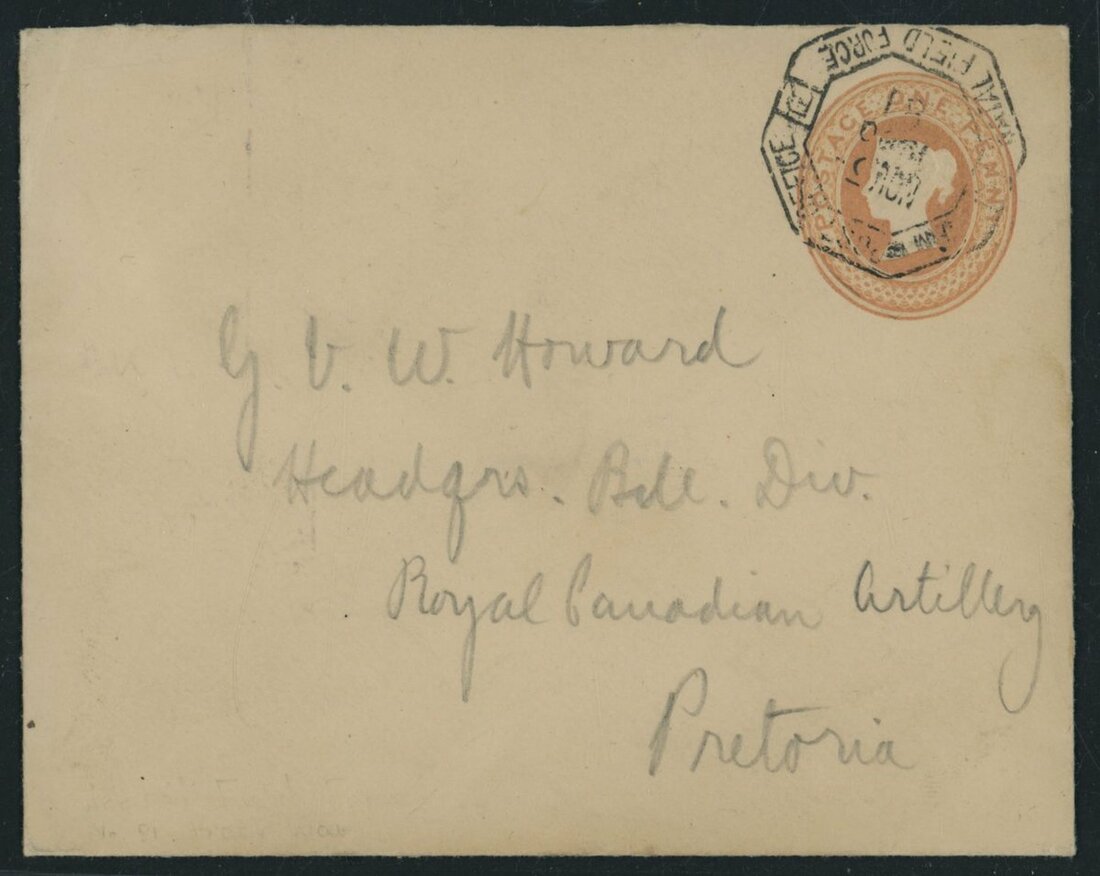 FIELD FORCE
POSTAGE ONE PENNY
NOV
G V. W. Howard
Headqrs. Bde. Div.
Royal Canadian Artillery
Pretoria